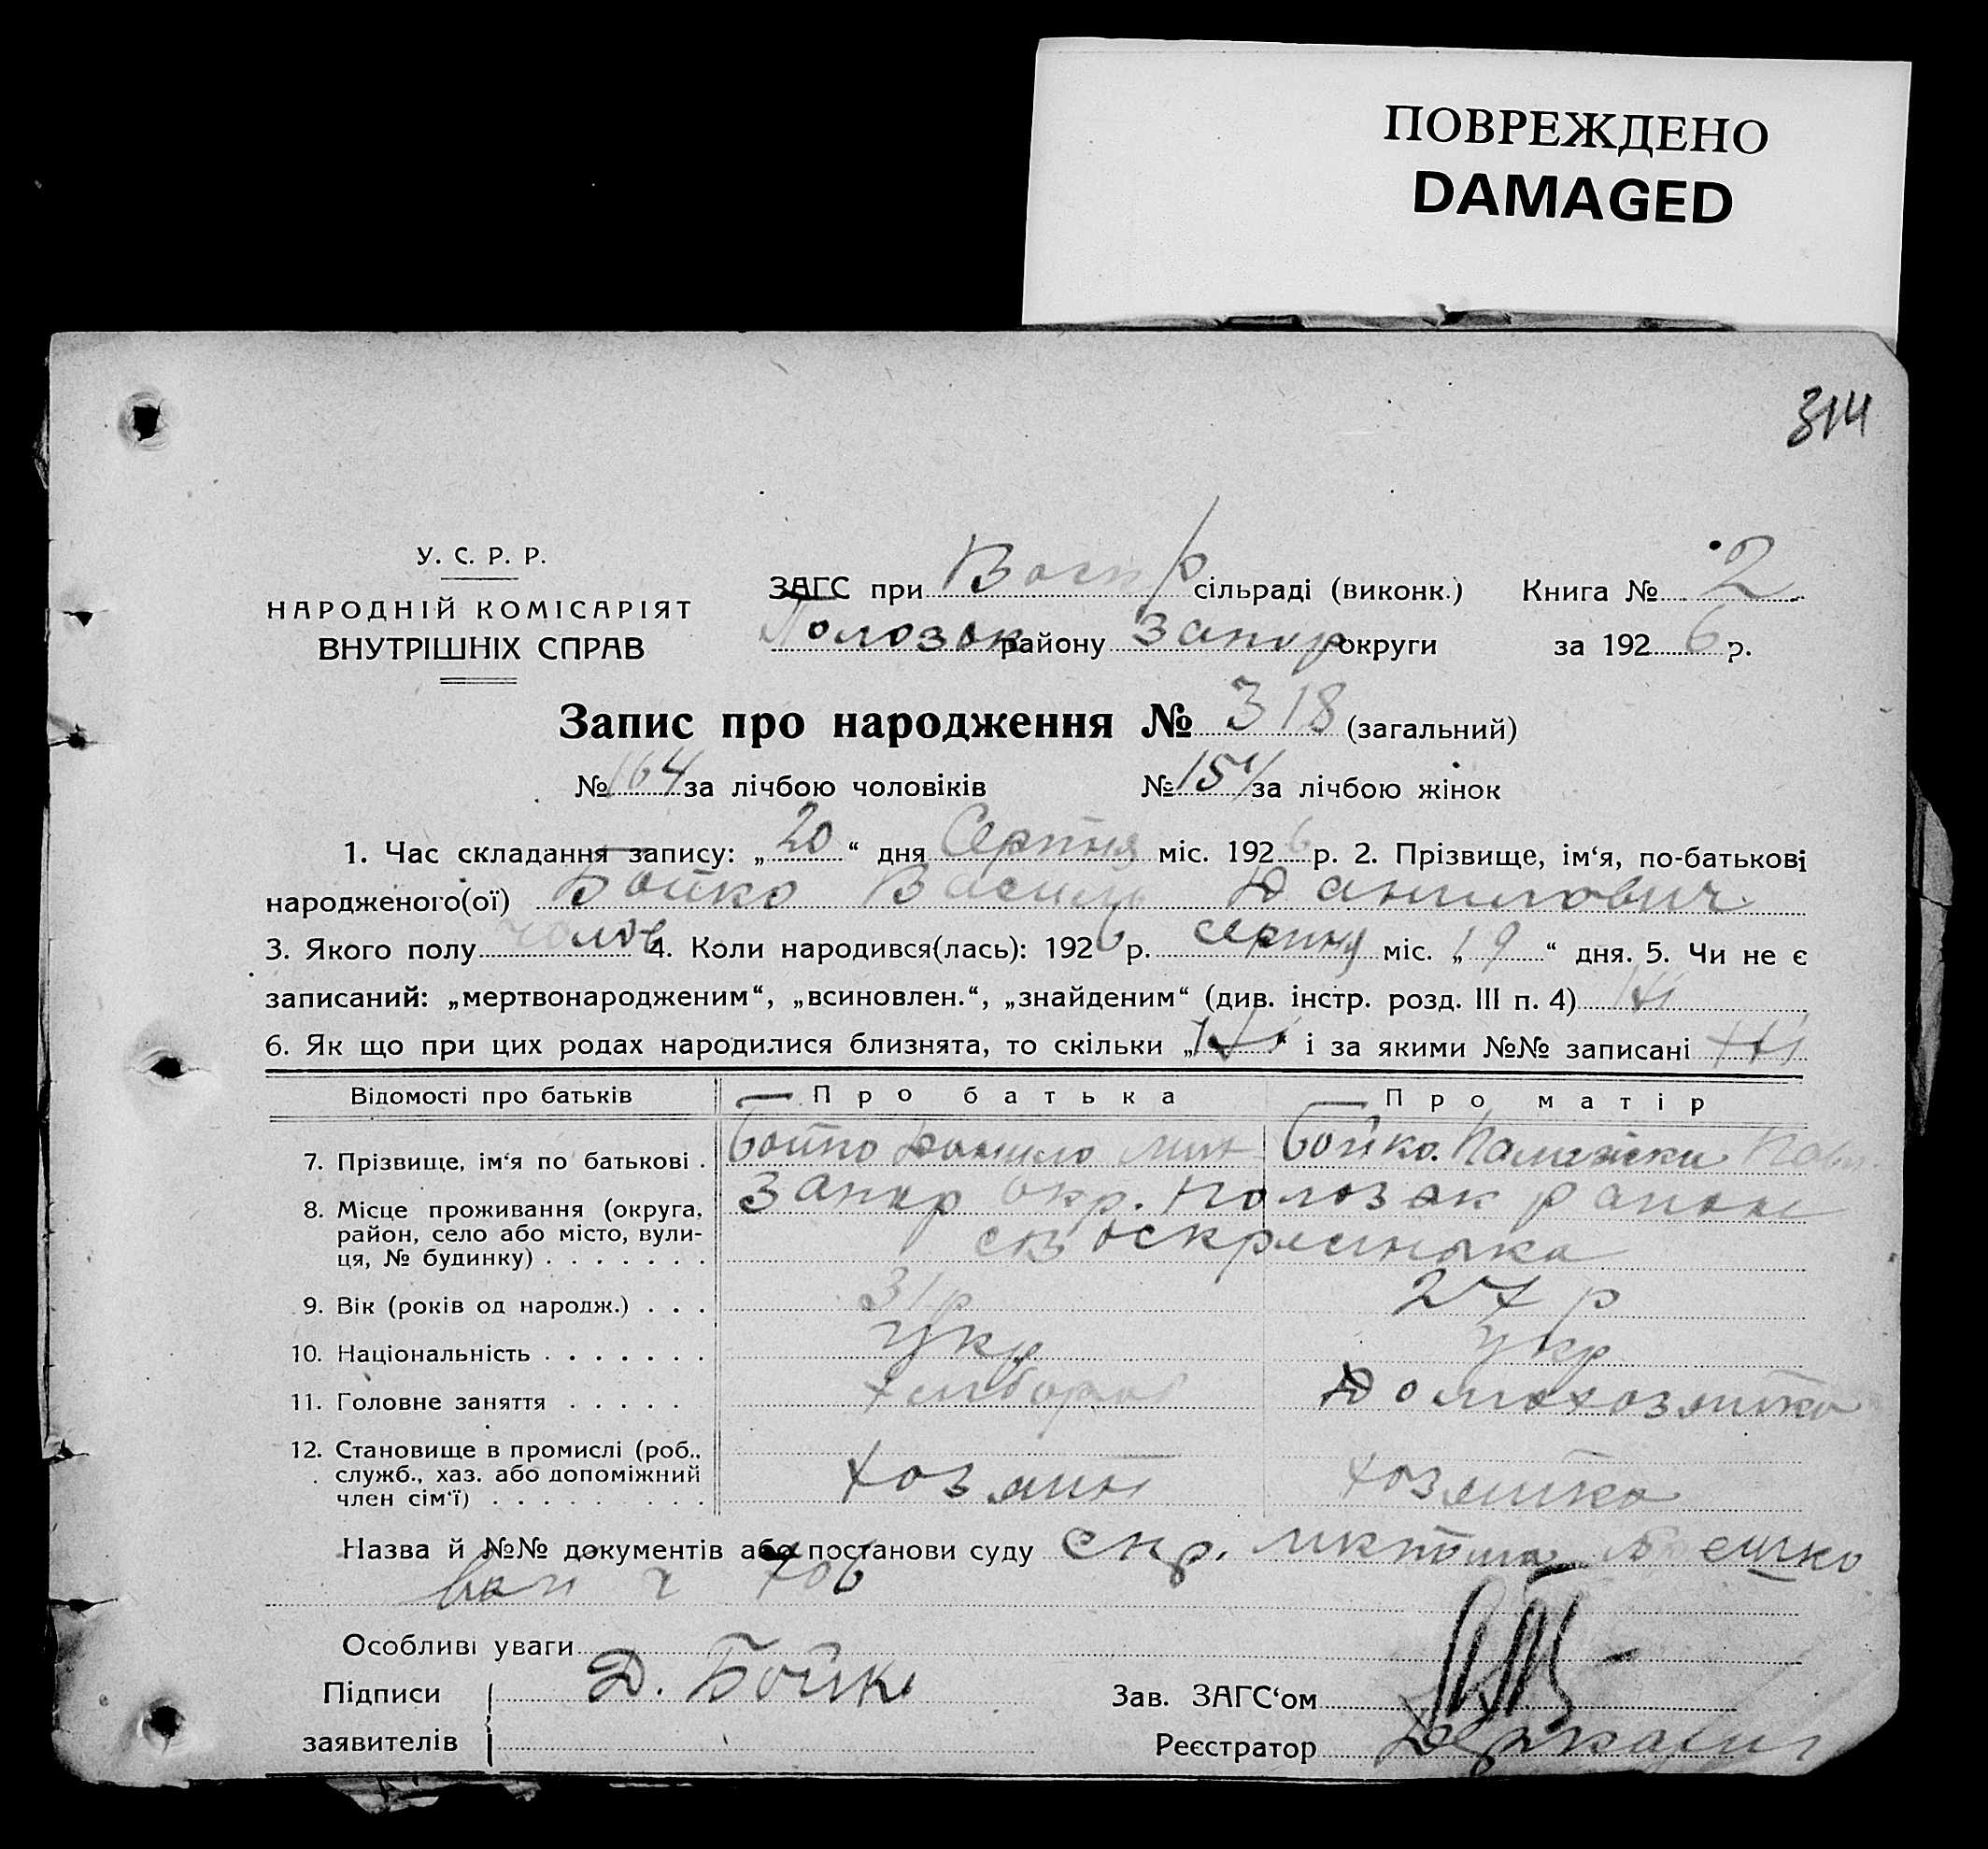 ПОВРЕЖДЕНО
DAMAGED
314
У. С. Р. Р.
НАРОДНІЙ КОМІСАРІЯТ
ВНУТРІШНІХ СПРАВ
ЗАГС при Воскр сільраді (виконк.) Книга № 2
Полозьк району Запор округи за 1926 р.
Запис про народження № 318 (загальний)
№ 164 за лічбою чоловіків № 154 за лічбою жінок
1. Час складання запису: „20“ дня Серпня міс. 1926 р. 2. Прізвище, ім‘я, по-батькові
народженого(ої) Бойко Василь Данилович
3. Якого полу чолов 4. Коли народився(лась): 1926 р. серпня міс. „19“ дня. 5. Чи не є
записаний: „мертвонародженим“, „всиновлен.“, „знайденим“ (див. інстр. розд. III п. 4) Ні
6. Як що при цих родах народилися близнята, то скільки „Ні“ і за якими №№ записані Ні
Відомості про батьків Про батька Про матір
7. Прізвище, ім‘я по батькові . Бойко Данило Бойко
8. Місце проживання (округа, район, село або місто, вулиця, № будинку) . . . . . . . Запор окр. Полозьк район
9. Вік (років од народж.) . . . 31 р 27 р
10. Національність . . . . . . . укр укр
11. Головне заняття . . . . . хлібороб Домохозяйка
12. Становище в промислі (роб., служб., хаз. або допоміжний член сім‘ї) . . . . . . . . . хозяин хозяйка
Назва й №№ документів або постанови суду
Особливі уваги
Підписи Д. Бойко Зав. ЗАГС‘ом
заявителів Реєстратор